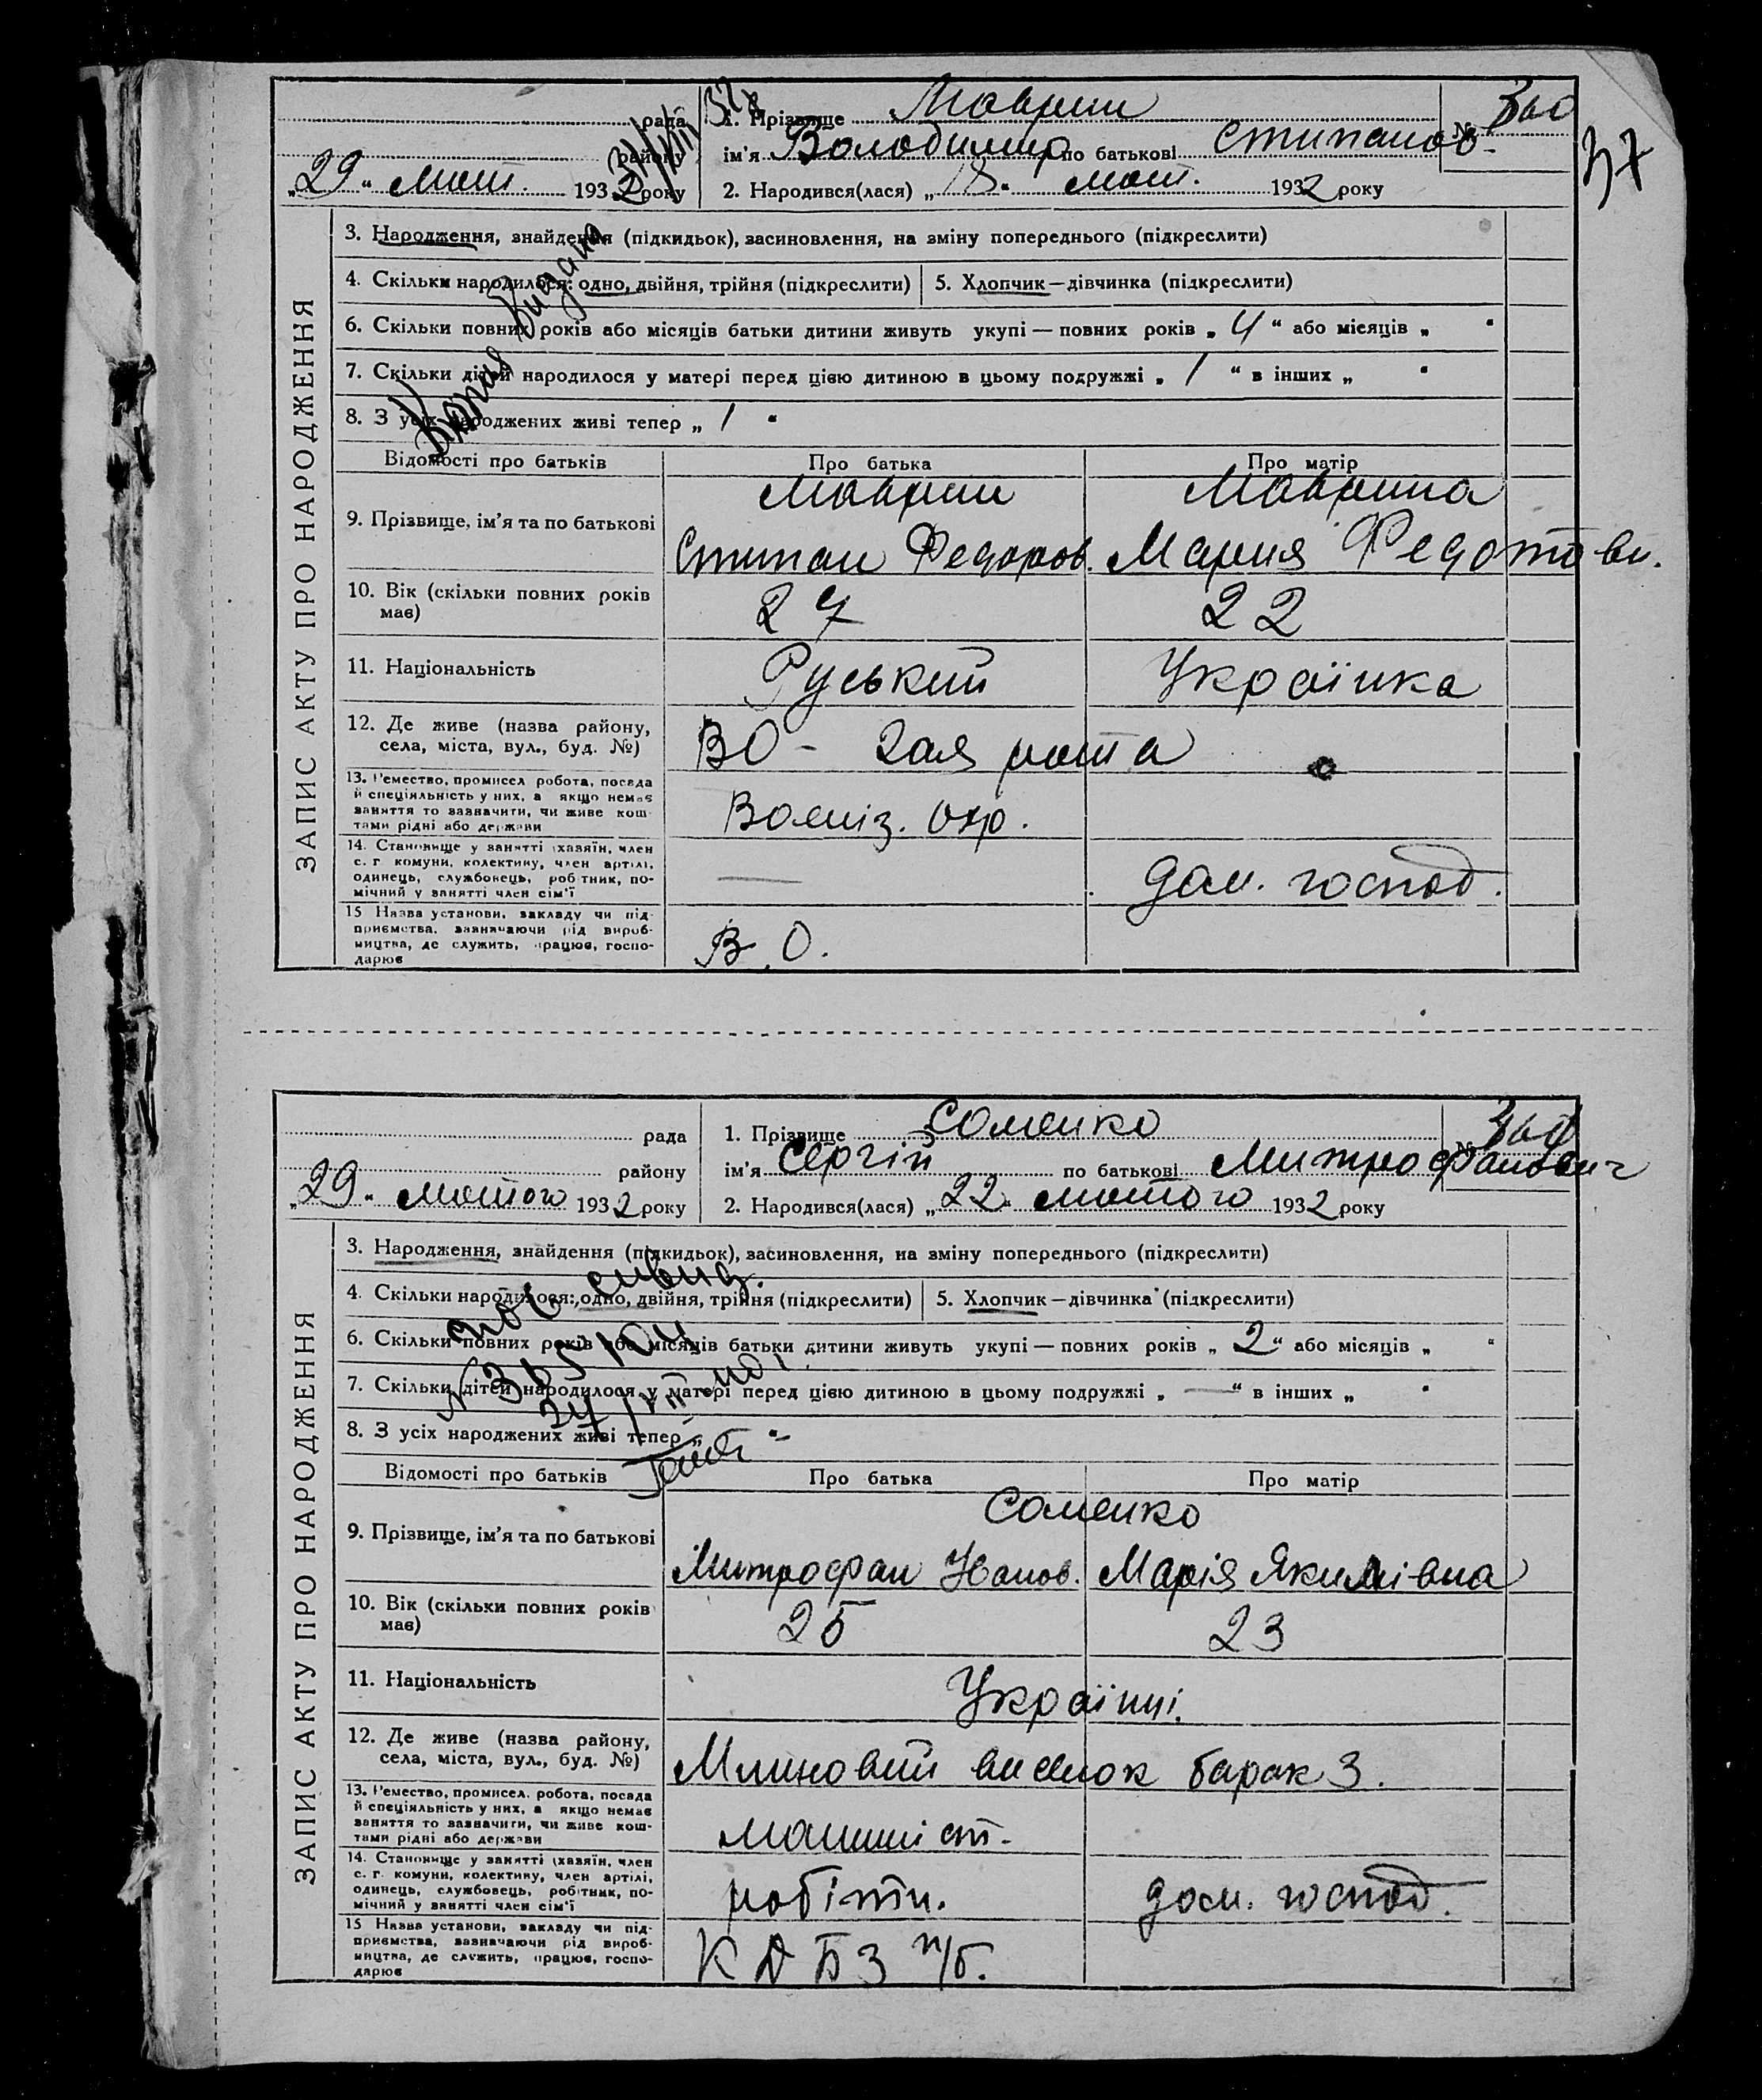 рада
1. Прізвище Маврин
360
37
району
ім'я Володимир по батькові Степанов.
№
„29“ лют. 1932 року
2. Народився(лася) „18“ лют. 1932 року
ЗАПИС АКТУ ПРО НАРОДЖЕННЯ
3. Народження, знайдення (підкидьок), засиновлення, на зміну попереднього (підкреслити)
4. Скільки народилося: одно, двійня, трійня (підкреслити)
5. Хлопчик—дівчинка (підкреслити)
6. Скільки повних років або місяців батьки дитини живуть укупі — повних років „4“ або місяців „ “
7. Скільки дітей народилося у матері перед цією дитиною в цьому подружжі „1“ в інших „ “
8. З усіх народжених живі тепер „1“
Копия видана
Відомості про батьків
Про батька
Про матір
9. Прізвище, ім'я та по батькові
Маврин
Маврина
Степан Федоров.
Мария Федотовн.
10. Вік (скільки повних років має)
27
22
11. Національність
Руський
Українка
12. Де живе (назва району, села, міста, вул., буд. №)
ВО - 2ая рота
13. Ремество, промисел робота, посада й спеціяльність у них, а якщо немає заняття то зазначити, чи живе коштами рідні або держави
Воєніз. Охр.
14. Становище у занятті (хазяїн, член с. г комуни, колективу, член артілі, одинець, службовець, робітник, помічний у занятті член сім'ї
—
дом. господ.
15 Назва установи, закладу чи підприємства, зазначаючи рід виробництва, де служить, працює, господарює
В.О.
рада
1. Прізвище Соменко
району
ім'я Сергій по батькові Митрофанович
№
„29“ лютого 1932 року
2. Народився(лася) „22“ лютого 1932 року
ЗАПИС АКТУ ПРО НАРОДЖЕННЯ
3. Народження, знайдення (підкидьок), засиновлення, на зміну попереднього (підкреслити)
4. Скільки народилося: одно, двійня, трійня (підкреслити)
5. Хлопчик—дівчинка (підкреслити)
6. Скільки повних років або місяців батьки дитини живуть укупі — повних років „2“ або місяців „ “
7. Скільки дітей народилося у матері перед цією дитиною в цьому подружжі „—“ в інших „ “
8. З усіх народжених живі тепер „ “
Відомості про батьків
Про батька
Про матір
9. Прізвище, ім'я та по батькові
Соменко
Митрофан Іванов.
Марія Якимівна
10. Вік (скільки повних років має)
25
23
11. Національність
Українці.
12. Де живе (назва району, села, міста, вул., буд. №)
Млиновий виселок барак 3.
13. Ремество, промисел. робота, посада й спеціяльність у них, а якщо немає заняття то зазначити, чи живе коштами рідні або держави
машиніст.
14. Становище у занятті (хазяїн, член с. г. комуни, колективу, член артілі, одинець, службовець, робітник, помічний у занятті член сім'ї
робітн.
дом. господ.
15 Назва установи, закладу чи підприємства, зазначаючи рід виробництва, де служить, працює, господарює
К Д Б З п/б.